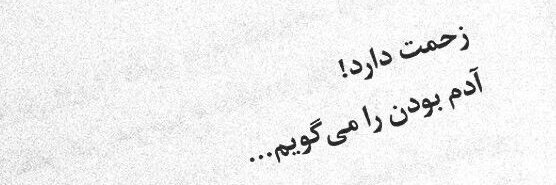 زحمت دارد!
آدم بودن را می‌گویم...